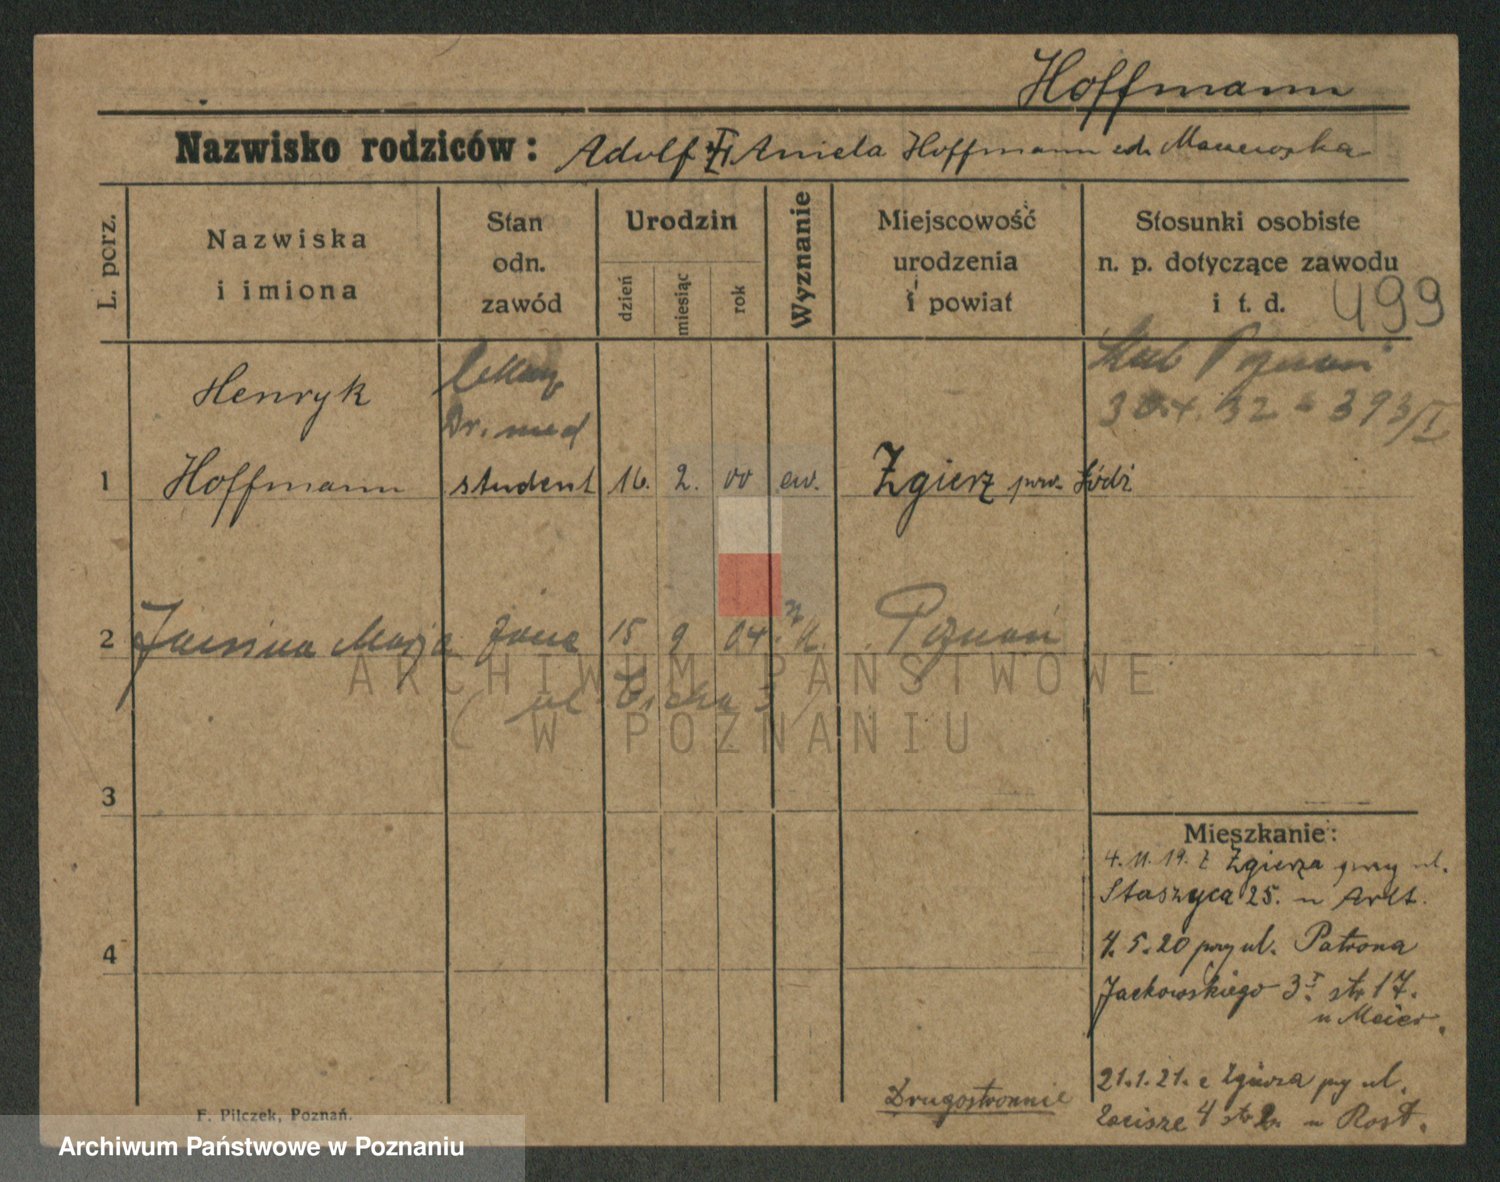 Hoffmann
Nazwisko rodziców: Adolf Aniela Hoffmann
L. porz.
Nazwiska i imiona
Stan odn. zawód
Urodzin
dzień
miesiąc
rok
Wyznanie
Miejscowość urodzenia i powiat
Stosunki osobiste n. p. dotyczące zawodu i t. d.
499
Henryk
lekarz
Dr. med
Poznań
30.X.32 393/I
1 Hoffmann student 16. 2. 00 ew. Zgierz pow. Łódź
2 Janina Marja żona 15 9 04 Poznań
( ul. Cicha 3 )
3
4
Mieszkanie:
4.11.19. z Zgierza przy ul.
Staszyca 25. u Arlt.
4.5.20 przy ul. Patrona
Jackowskiego 3 I. str 17.
u Meier.
21.1.21. z Zgierza przy ul.
Zacisze 4 u Rost.
Drugostronnie
F. Pilczek, Poznań.
ARCHIWUM PAŃSTWOWE
W POZNANIU
Archiwum Państwowe w Poznaniu